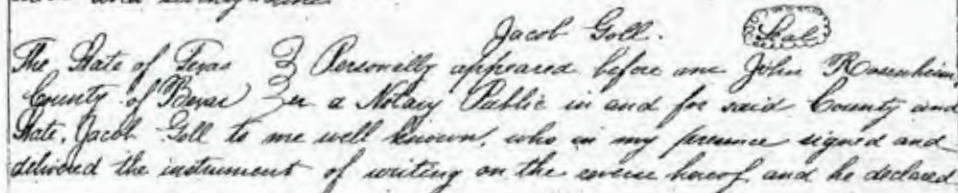 Jacob Goll. Seal
The State of Texas } Personally appeared before me John Rosenheim
County of Bexar } a Notary Public in and for said County and
State, Jacob Goll to me well known, who in my presence signed and
delivered the instrument of writing on the reverse hereof and he declared